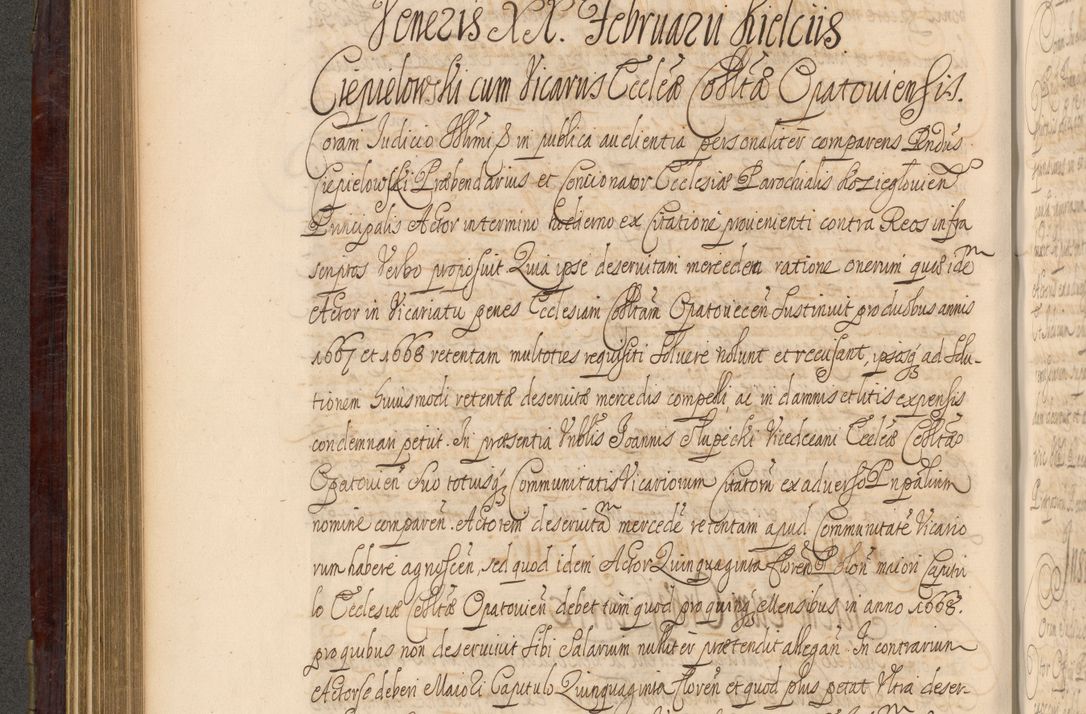 Veneris XX. Februarii Kielciis
Ciepielowski cum Vicariis Eccleæ Colltæ Opatoviensis.
Coram Judicio Illmi S in publica audientia personaliter comparens Pndus
Ciepielowski Præbendarius et Concionator Ecclesiæ Parochialis Kozieglovien
Principalis Actor in termino hodierno ex Citatione provenienti contra Reos infra
scriptos Verbo proposuit Quia ipse deservitam mercedem ratione onerum quæ idem
Actor in Vicariatu penes Ecclesiam Colltam Opatovecen Sustinuit pro duobus annis
1667 et 1668 retentam multoties requisiti Solvere nolunt et recusant, ipsosq ad Solu-
tionem huiusmodi retentæ deservitæ mercedis compelli, ac in damnis et litis expensis
condemnari petiit. In præsentia Vnblis Joannis Slupecki Vicedecani Eccleæ Colltæ
Opatovien Suo totiusq Communitatis Vicariorum Citatorum ex adverso Pnpalium
nomine comparen. Actorem deservitam mercede retentam apud Communitate Vicario
rum habere agnoscen, sed quod idem Actor Quinquaginta floren Polon maiori Capitu
lo Ecclesiæ Colltæ Opatovien debet tum quod pro quinq Mensibus in anno 1668.
pro quibus non deservivit Sibi Salarium nulliter prætendit allegan. In contrarium
Actor se deberi Maiori Capitulo Quinquaginta floren et quod plus petat Ultra deser-